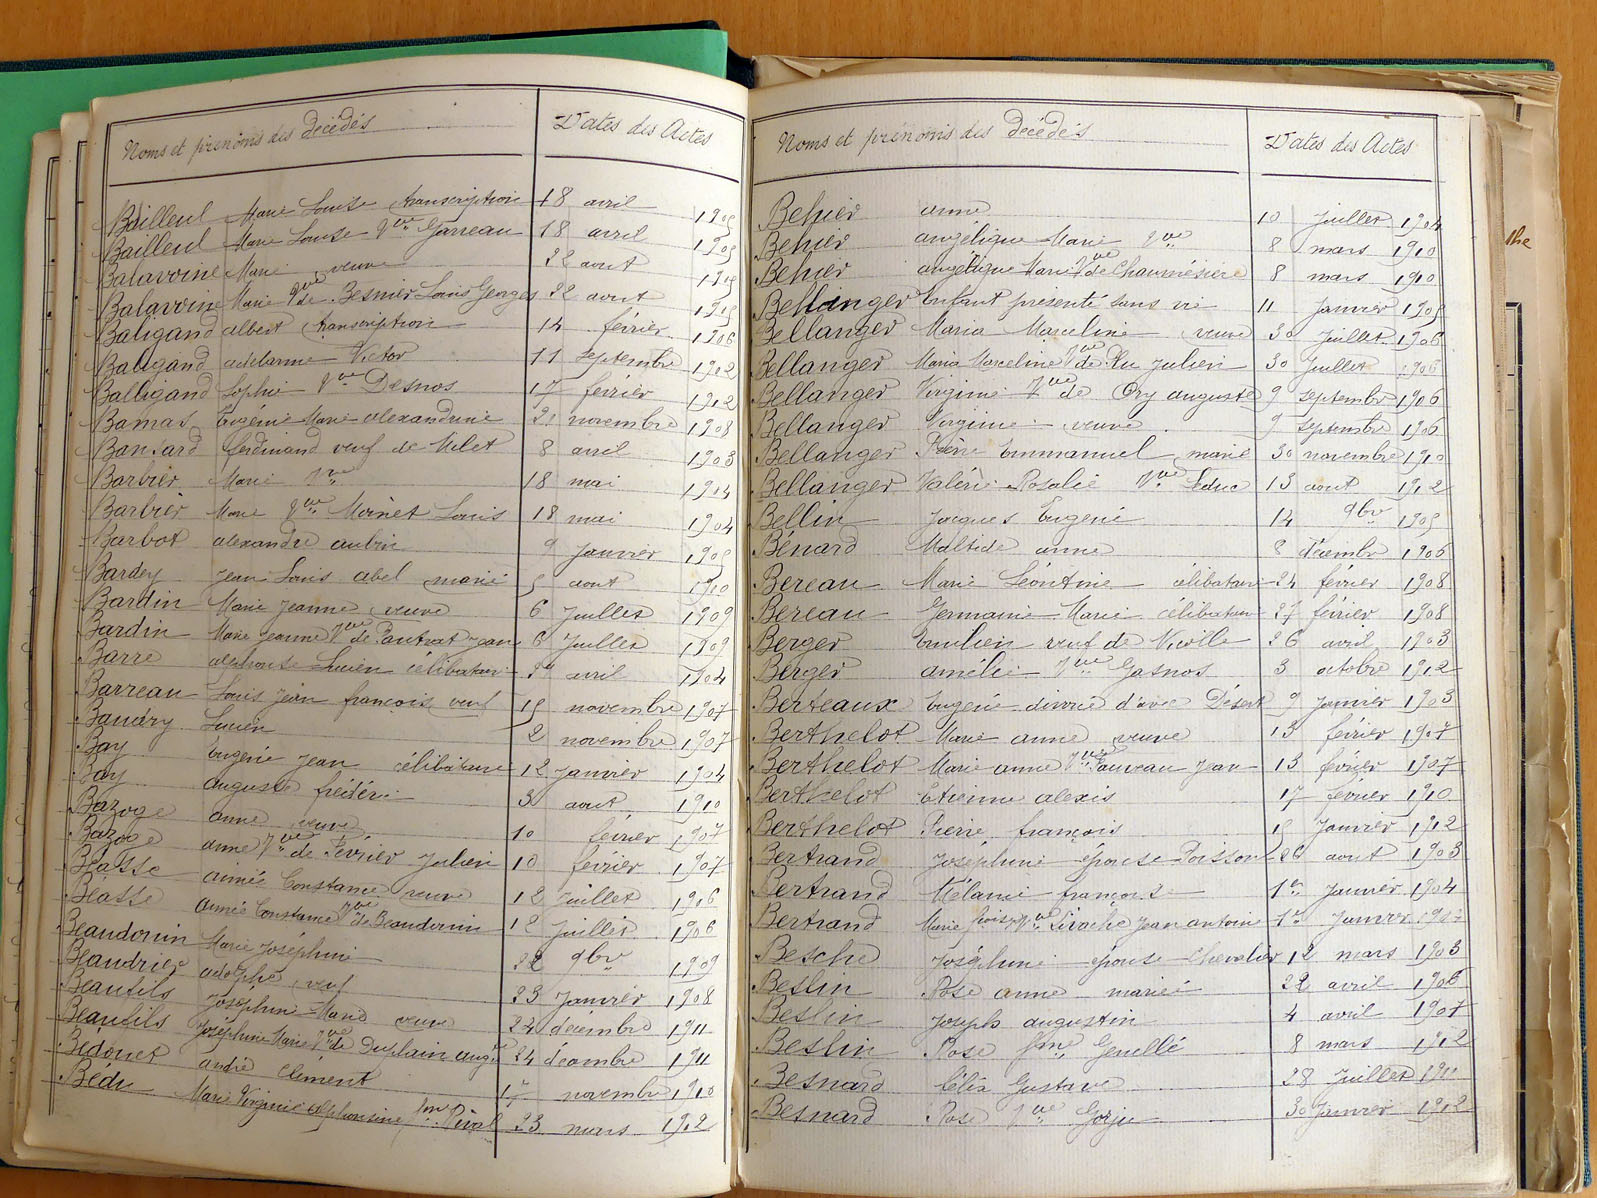 Noms et prénoms des décédés Dates des Actes
Bailleul Marie Louise transcription 18 avril 1905
Bailleul Marie Louise Vve Garreau 18 avril 1905
Balavoine Marie veuve 22 aout 1905
Balavoine Marie Vve de Besnier Louis Georges 22 aout 1905
Baligand albert transcription 14 février 1906
Baligand Victor 11 septembre 1902
Balligand Sophie Vve Desnos 17 février 1912
Bamas Eugénie Marie alexandrine 21 novembre 1908
Bansard ferdinand veuf de Milet 8 avril 1903
Barbier Marie Vve 18 mai 1904
Barbier Marie Vve Moinet Louis 18 mai 1904
Barbot alexandre aubin 9 Janvier 1905
Bardey Jean Louis abel marié 5 aout 1910
Bardin Marie Jeanne veuve 6 Juillet 1909
Bardin Marie Jeanne Vve de Jean 6 Juillet 1909
Barré alphonse Lucien célibataire avril 1904
Barreau Louis Jean françois veuf 15 novembre 1907
Baudry Lucien 2 novembre 1907
Bay Eugénie Jean célibataire 12 Janvier 1904
Bay auguste frédéric 3 aout 1910
Bazoge anne veuve 10 février 1907
Bazoge anne Vve de Février Julien 10 février 1907
Beasse aimée Constance veuve 12 Juillet 1906
Beasse aimée Constance Vve de Beaudouin 12 Juillet 1906
Beaudouin Marie Joséphine 22 9bre 1909
Beaudrier adolphe veuf 23 Janvier 1908
Beaufils Joséphine Marie veuve 24 décembre 1911
Beaufils Joséphine Marie Vve de Duplain 24 décembre 1911
Bedouet andré Clément 17 novembre 1910
Bédu Marie Virginie alphonsine fme 23 mars 1912
Noms et prénoms des décédés Dates des Actes
Behier anne 10 Juillet 1904
Behier angélique Marie Vve 8 mars 1910
Behier angélique Marie Vve de Chaumésière 8 mars 1910
Bellanger Enfant présenté sans vie 11 Janvier 1905
Bellanger Maria Marceline veuve 30 Juillet 1906
Bellanger Maria Marceline Vve de Julien 30 Juillet 1906
Bellanger Virginie Vve de Ory auguste 9 septembre 1906
Bellanger Virginie veuve 9 septembre 1906
Bellanger Pierre Emmanuel marié 30 novembre 1910
Bellanger Valérie Rosalie Vve Leduc 13 aout 1912
Bellin Jacques Eugène 14 9bre 1905
Bénard Maltide anne 8 décembre 1906
Bereau Marie Léontine célibataire 24 février 1908
Bereau Germaine Marie célibataire 27 février 1908
Berger Emilien veuf de 26 avril 1903
Berger amélie Vve Gasnos 3 octobre 1912
Berteaux Eugénie divorcé d'avec Désert 9 Janvier 1903
Berthelot Marie anne veuve 13 février 1907
Berthelot Marie anne Vve Fauveau Jean 13 février 1907
Berthelot Etienne alexis 17 février 1910
Berthelot Pierre françois Janvier 1912
Bertrand Joséphine épouse Poisson 26 aout 1903
Bertrand Mélanie françoise 1er Janvier 1904
Bertrand Marie Vve Jean antoine 1er Janvier
Besche Joséphine épouse Chevalier 12 mars 1903
Beslin Rose anne mariée 22 avril 1906
Beslin Joseph augustin 4 avril 1907
Beslin Rose fme Genellé 8 mars 1912
Besnard Félix Gustave 28 Juillet 1911
Besnard Rose Vve Gorju 30 Janvier 1912
the